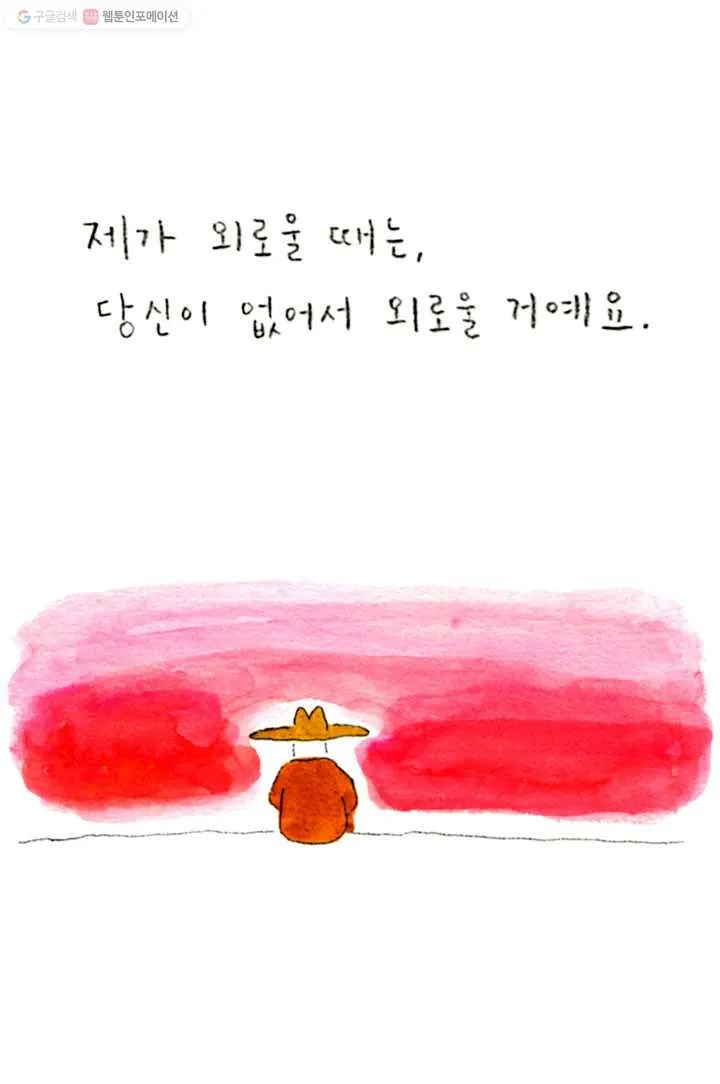 구글검색 웹툰인포메이션
제가 외로울 때는,
당신이 없어서 외로울 거예요.